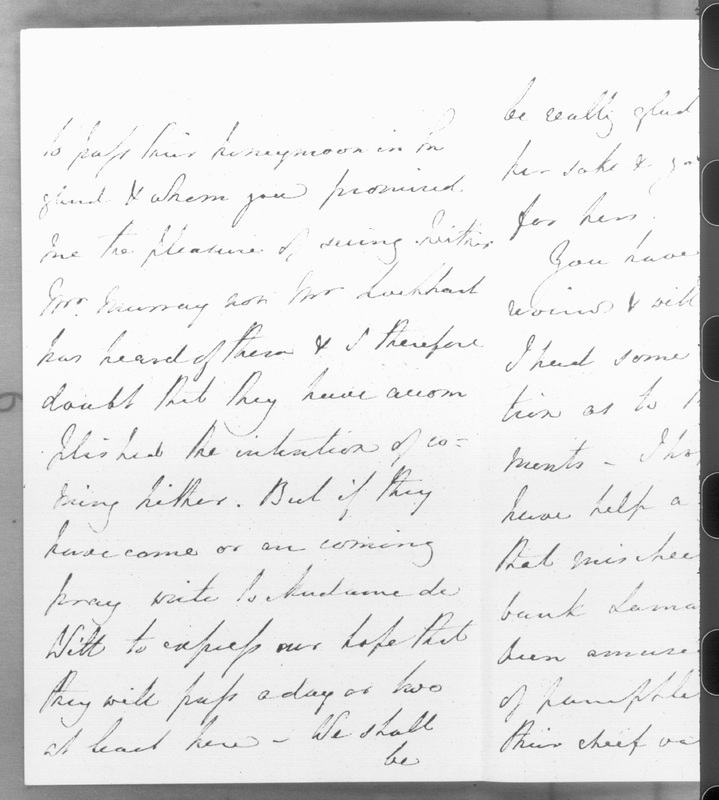 to pass their honeymoon in En
gland & whom you promised
me the pleasure of seeing. Neither
Mrr. Murray nor Mr Lockhart
has heard of them & I therefore
doubt that they have accom
plished the intention of co-
ming hither. But if they
have come or are coming
pray write to Madame de
Witt to express our hope that
they will pass a day or two
at least here - We shall
be
be really glad
her sake &
for hers.
You have
& will
I had some
tion as to
ments -
have help a
that mischee
bank
been amuse
of pamphle
their cheef